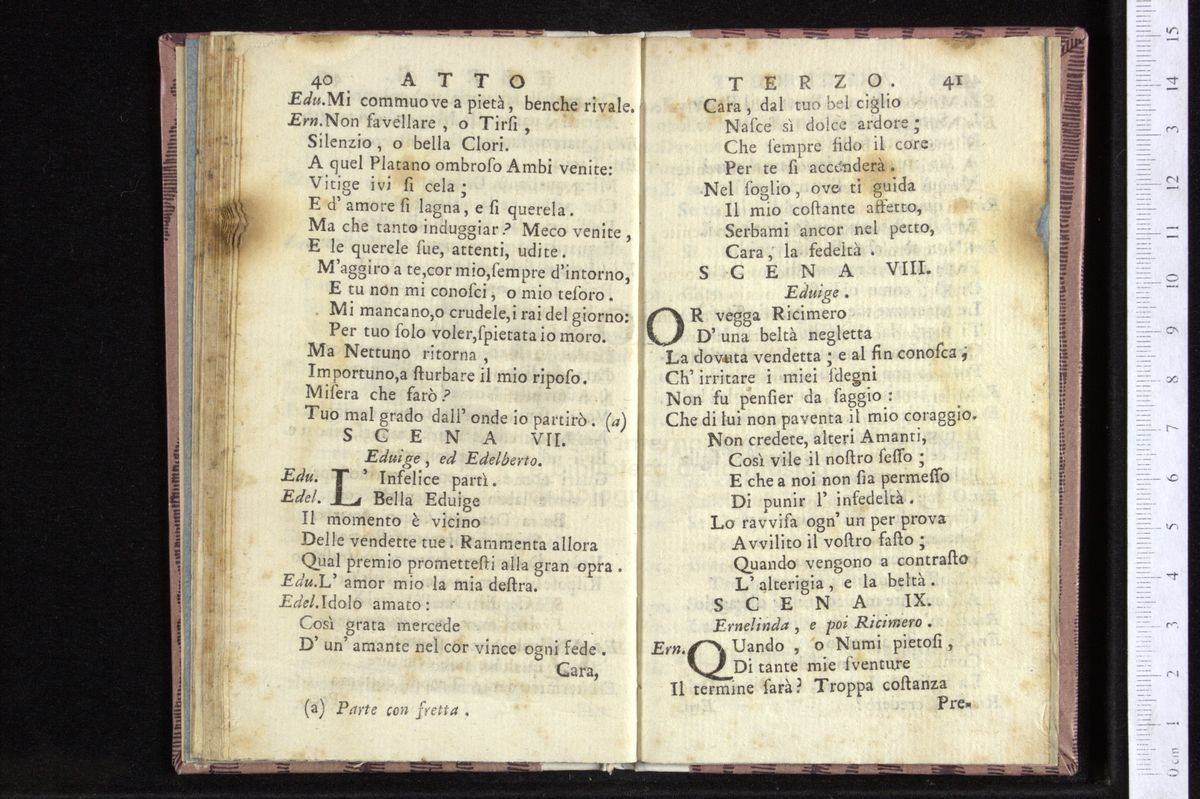 40 ATTO
Edu.Mi commuove a pietà, benche rivale.
Ern.Non favellare, o Tirſi,
Silenzio, o bella Clori.
A quel Platano ombroſo Ambi venite:
Vitige ivi ſi cela;
E d' amore ſi lagna, e ſi querela.
Ma che tanto induggiar? Meco venite,
E le querele ſue, attenti, udite.
M'aggiro a te,cor mio,ſempre d'intorno,
E tu non mi conoſci, o mio teſoro.
Mi mancano,o crudele,i rai del giorno:
Per tuo ſolo voler,ſpietata io moro.
Ma Nettuno ritorna,
Importuno,a ſturbare il mio ripoſo.
Miſera che farò?
Tuo mal grado dall' onde io partirò. (a)
SCENA VII.
Eduige, ed Edelberto.
Edu. L' Infelice partì.
Edel. Bella Eduige
Il momento è vicino
Delle vendette tue. Rammenta allora
Qual premio prometteſti alla gran opra.
Edu.L' amor mio la mia deſtra.
Edel.Idolo amato:
Così grata mercede
D' un' amante nel cor vince ogni fede.
Cara,
(a) Parte con fretta.
TERZO. 41
Cara, dal tuo bel ciglio
Naſce sì dolce ardore;
Che ſempre fido il core
Per te ſi accenderà.
Nel ſoglio, ove ti guida
Il mio coſtante affetto,
Serbami ancor nel petto,
Cara, la fedeltà.
SCENA VIII.
Eduige.
OR vegga Ricimero
D' una beltà negletta
La dovuta vendetta; e al fin conoſca;
Ch' irritare i miei ſdegni
Non fu penſier da ſaggio:
Che di lui non paventa il mio coraggio.
Non credete, alteri Amanti,
Così vile il noſtro ſeſſo;
E che a noi non ſia permeſſo
Di punir l' infedeltà.
Lo ravviſa ogn' un per prova
Avvilito il voſtro faſto;
Quando vengono a contraſto
L' alterigia, e la beltà.
SCENA IX.
Ernelinda, e poi Ricimero.
Ern. QUando, o Numi pietoſi,
Di tante mie ſventure
Il termine ſarà? Troppa coſtanza
Pre-